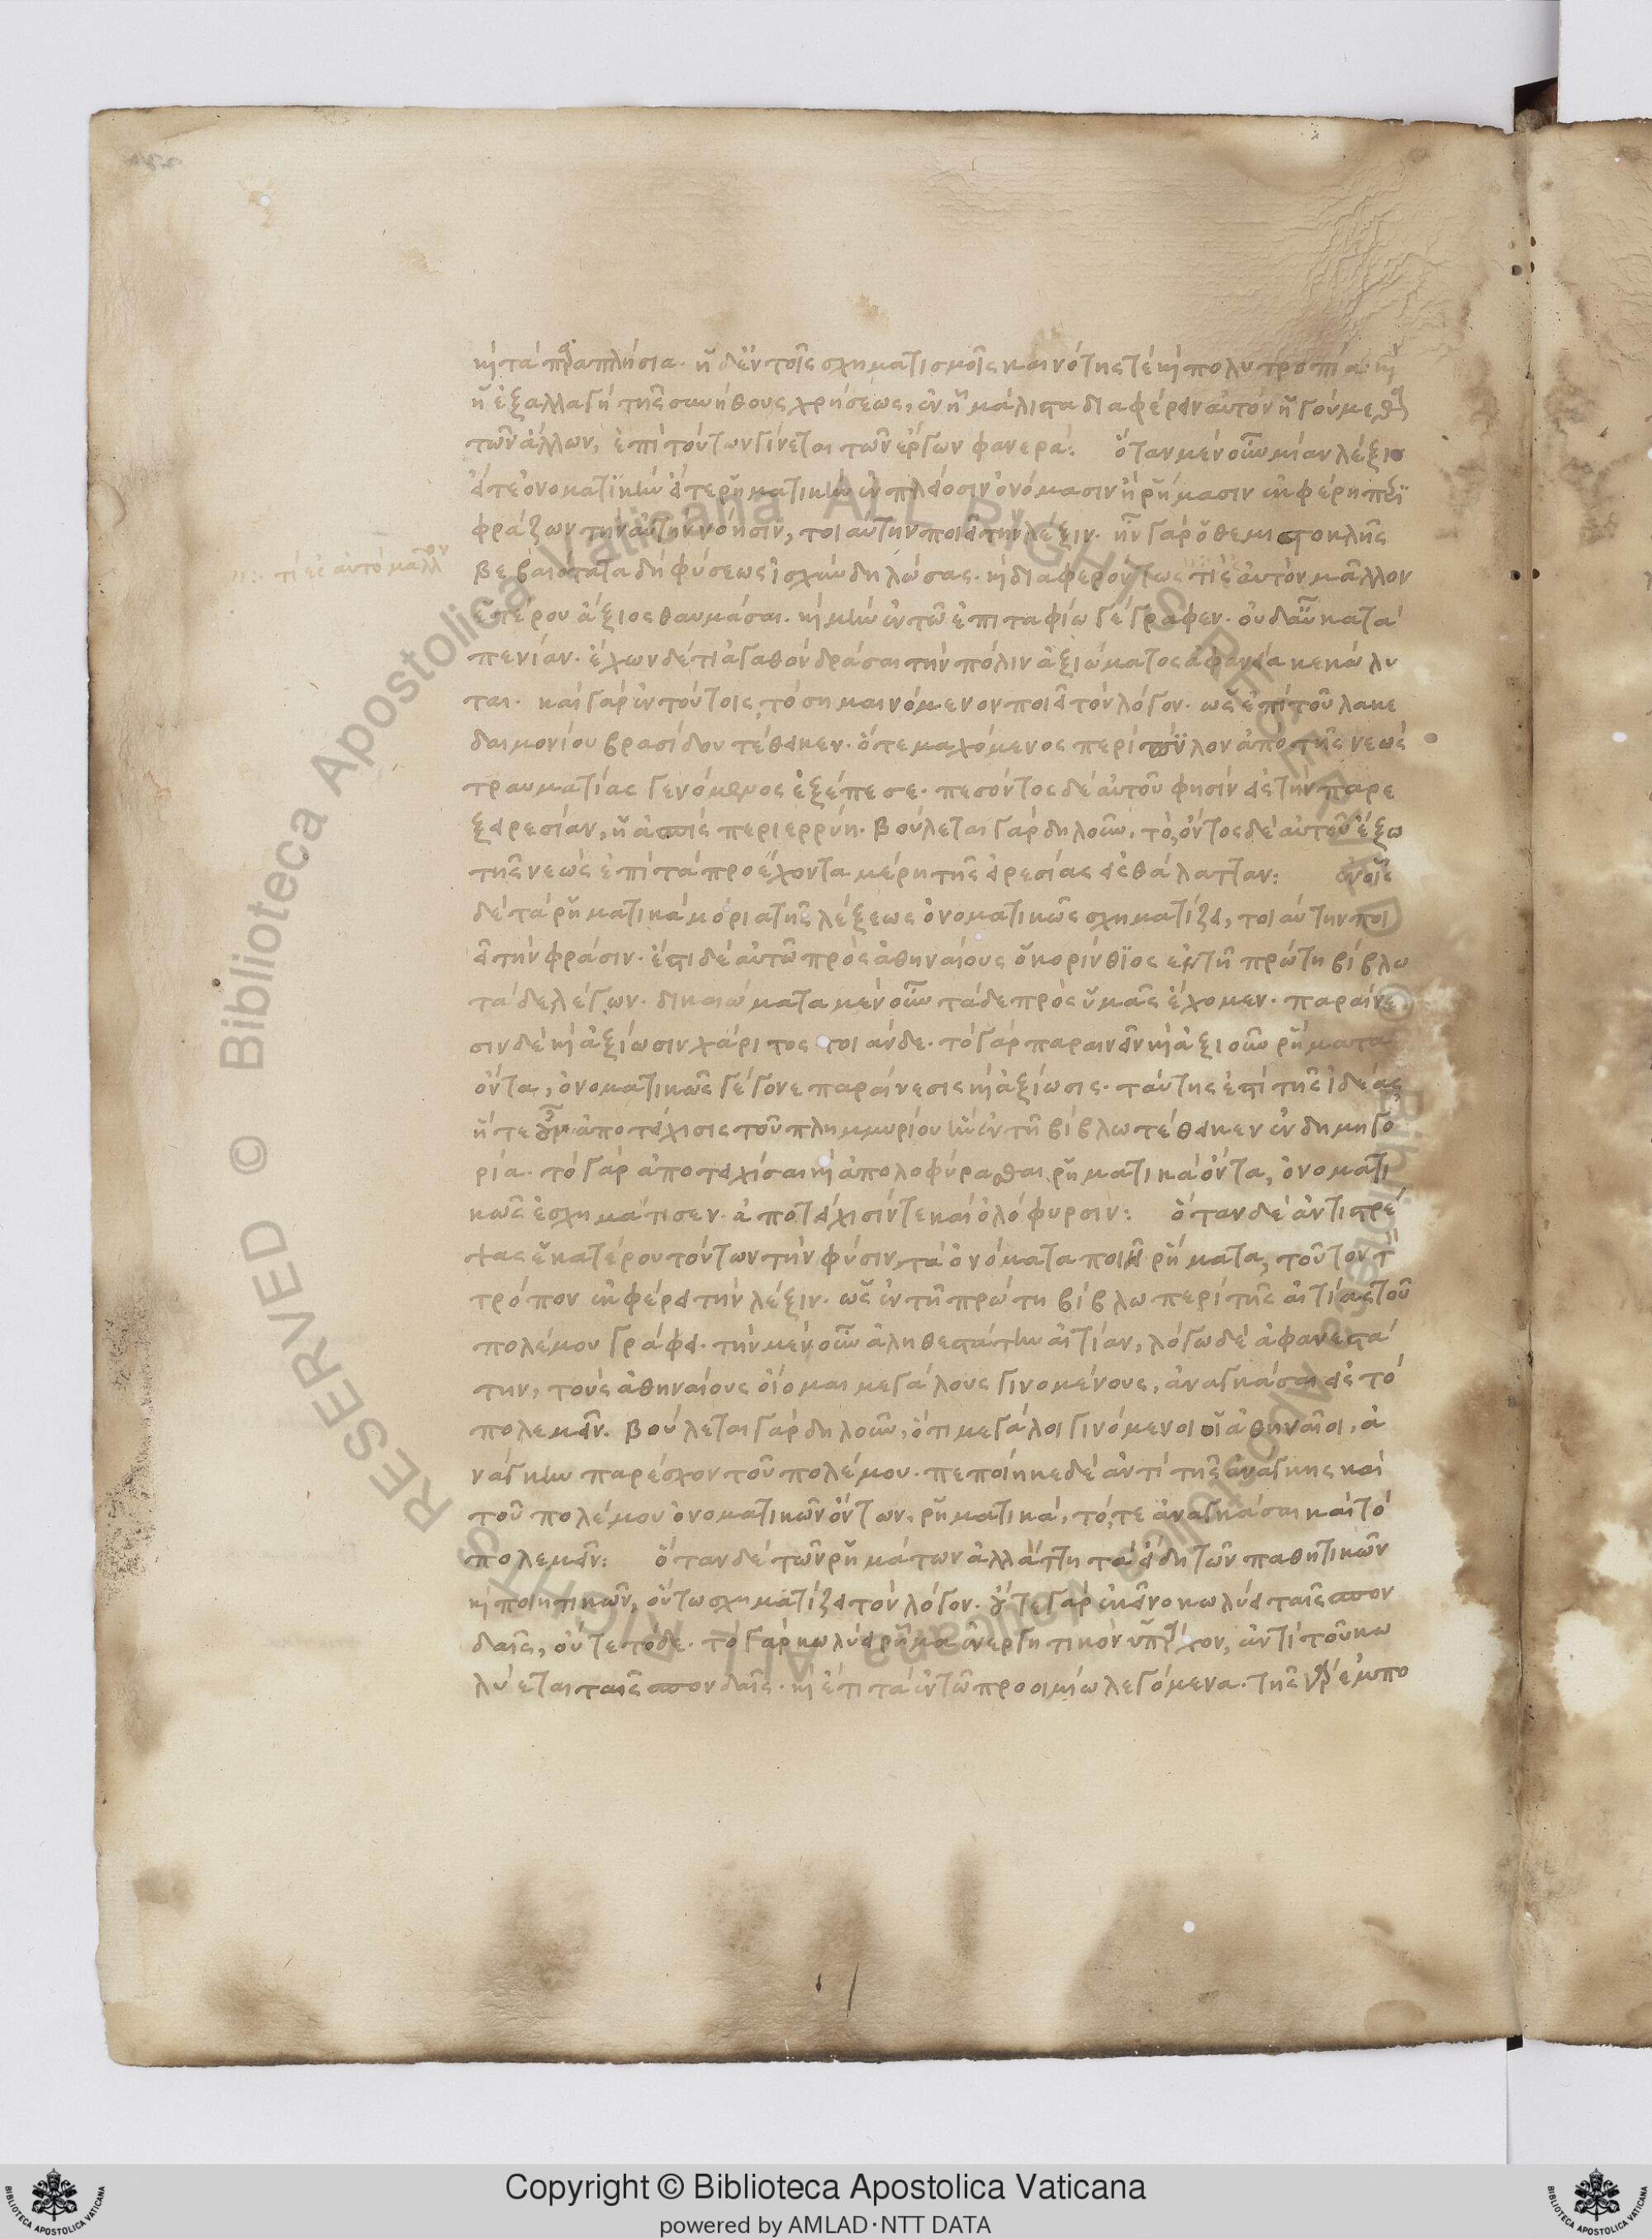 καὶ τὰ παραπλήσια. ἡ δ' ἐν τοῖς σχηματισμοῖς καινότης τὲ καὶ πολυτροπία. καὶ
ἡ ἐξαλλαγὴ τῆς συνήθους χρήσεως, ἐν ᾗ μάλιστα διαφέρειν αὐτὸν ἡγούμεθα
τῶν ἄλλων, ἐπὶ τούτων γίνεται τῶν ἔργων φανερά: ὅταν μὲν οὖν μίαν λέξιν
εἴτε ὀνοματικὴν εἴτε ῥηματικὴν ἐν πλείοσιν ὀνόμασιν ἢ ῥήμασιν ἐκφέρη περι
φράζων τὴν αὐτὴν νόησιν, τοιαύτην ποιεῖ τὴν λέξιν. ἦν γὰρ ὁ θεμιστοκλῆς
τὶ ἐς αὐτὸ μᾶλλον
βεβαιότατα δὴ φύσεως ἰσχὺν δηλώσας. καὶ διαφερόντως τὶ ἐς αὐτὸν μᾶλλον
ἑτέρου ἄξιος θαυμάσαι. καὶ μὴν ἐν τῶ ἐπιταφίω γέγραφεν. οὐδ' αὖ κατὰ
πενίαν. ἔχων δέ τι ἀγαθὸν δρᾶσαι τὴν πόλιν ἀξιώματος ἀφανεία κεκώλυ
ται. καὶ γὰρ ἐν τούτοις, τὸ σημαινόμενον ποιεῖ τὸν λόγον. ὡς ἐπὶ τοῦ λακε
δαιμονίου βρασίδου τέθεικεν. ὅτε μαχόμενος περὶ πύλον ἀπὸ τῆς νεὼς
τραυματίας γενόμενος ἐξέπεσε. πεσόντος δὲ αὐτοῦ φησὶν εἰς τὴν παρε
ξειρεσίαν, ἡ ἀσπὶς περιερρύη. βούλεται γὰρ δηλοῦν, τὸ, ὄντος δὲ αὐτοῦ ἔξω
τῆς νεὼς ἐπὶ τὰ προέχοντα μέρη τῆς εἰρεσίας εἰς θάλατταν: ἐν οἷς
δὲ τὰ ῥηματικὰ μόρια τῆς λέξεως ὀνοματικῶς σχηματίζει, τοιαύτην ποι
εῖ τὴν φράσιν. ἔστι δὲ αὐτῶ πρὸς ἀθηναίους ὁ κορίνθιος ἐν τῆ πρώτη βίβλω
τάδε λέγων. δικαιώματα μὲν οὖν τάδε πρὸς ὑμᾶς ἔχομεν. παραίνε
σιν δὲ καὶ ἀξίωσιν χάριτος τοιάνδε. τὸ γὰρ παραινεῖν καὶ ἀξιοῦν ῥήματα
ὄντα, ὀνοματικῶς γέγονε παραίνεσις καὶ ἀξίωσις. ταύτης ἐστὶ τῆς ἰδέας
ἥ τε ἀποτείχισις τοῦ πλημμυρίου ἣν ἐν τῆ βίβλω τέθεικεν ἐν δημηγο
ρία. τὸ γὰρ ἀποτειχίσαι καὶ ἀπολοφύρασθαι ῥηματικὰ ὄντα, ὀνοματι
κῶς ἐσχημάτισεν. ἀποτείχισίν τε καὶ ὀλόφυρσιν: ὅταν δὲ ἀντιστρέ
ψας ἑκατέρου τούτων τὴν φύσιν, τὰ ὀνόματα ποιῆ ῥήματα, τοῦτον τ
τρόπον ἐκφέρει τὴν λέξιν. ὡς ἐν τῆ πρώτη βίβλω περὶ τῆς αἰτίας τοῦ
πολέμου γράφει. τὴν μὲν οὖν ἀληθεστάτην αἰτίαν, λόγω δὲ ἀφανεστά
την, τοὺς ἀθηναίους οἴομαι μεγάλους γινομένους, ἀναγκάσαι εἰς τὸ
πολεμεῖν. βούλεται γὰρ δηλοῦν, ὅτι μεγάλοι γινόμενοι οἱ ἀθηναῖοι, ἀ
νάγκην παρέσχον τοῦ πολέμου. πεποίηκε δὲ ἀντὶ τῆς ἀνάγκης καὶ
τοῦ πολέμου ὀνοματικῶν ὄντων, ῥηματικά, τό, τε ἀναγκάσαι καὶ τὸ
πολεμεῖν: ὅταν δὲ τῶν ῥημάτων ἀλλάττη τὰ εἴδη τῶν παθητικῶν
καὶ ποιητικῶν, οὕτω σχηματίζει τὸν λόγον. οὔτε γὰρ ἐκεῖνο κωλύει ταῖς σπον
δαῖς, οὔτε τόδε. τὸ γὰρ κωλύει ῥῆμα ἐνεργητικὸν ὑπάρχον, ἀντὶ τοῦ κω
λύεται ταῖς σπονδαῖς. καὶ ἔτι τὰ ἐν τῶ προοιμίω λεγόμενα. τῆς γὰρ ἐμπο
Copyright © Biblioteca Apostolica Vaticana
powered by AMLAD·NTT DATA
© Biblioteca Apostolica Vaticana ALL RIGHTS RESERVED